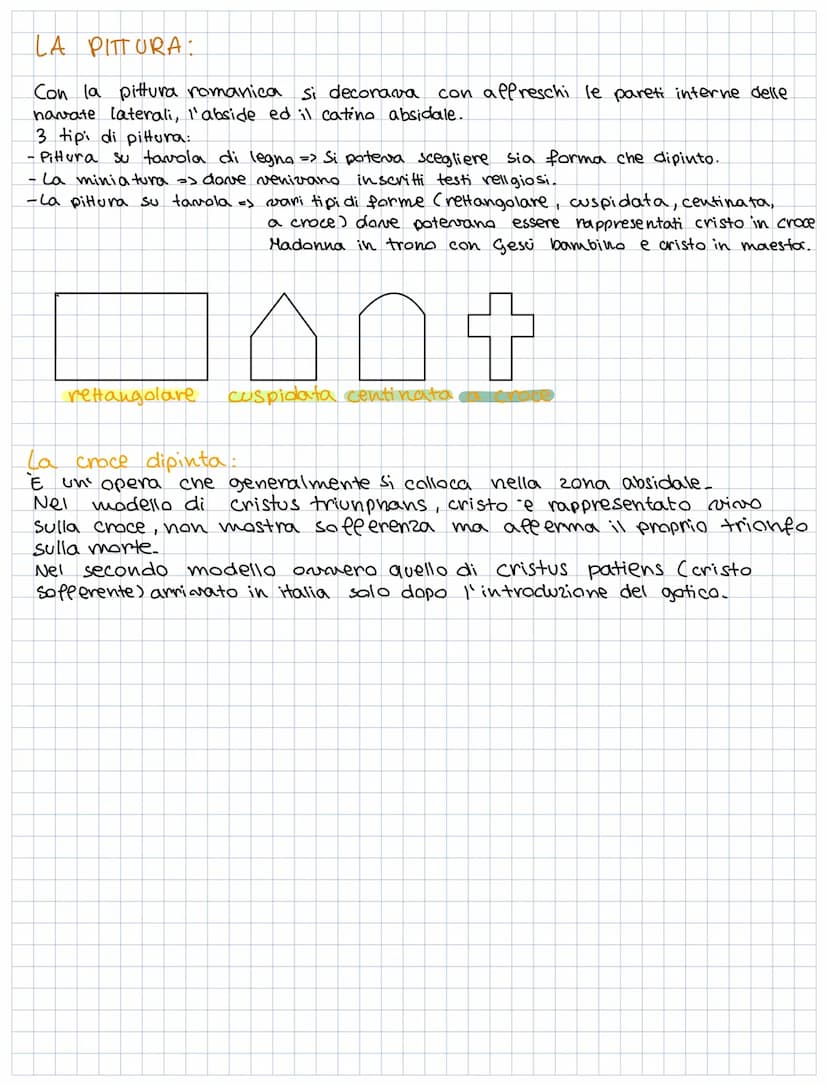 LA PITTURA:
Con la pittura romanica si decorava con affreschi le pareti interne delle
navate laterali, l'abside ed il catino absidale.
3 tipi di pittura:
- Pittura su tavola di legno => Si poteva scegliere sia forma che dipinto.
- La miniatura => dove venivano inscritti testi religiosi.
- La pittura su tavola => vari tipi di forme (rettangolare, cuspidata, centinata,
a croce) dove potevano essere rappresentati cristo in croce
Madonna in trono con Gesù bambino e cristo in maestà.
rettangolare cuspidata centinata a croce
La croce dipinta:
È un'opera che generalmente si colloca nella zona absidale.
Nel modello di cristus triunphans, cristo è rappresentato vivo
sulla croce, non mostra sofferenza ma afferma il proprio trionfo
sulla morte.
Nel secondo modello ovvero quello di cristus patiens (cristo
sofferente) arrivato in italia solo dopo l'introduzione del gotico.